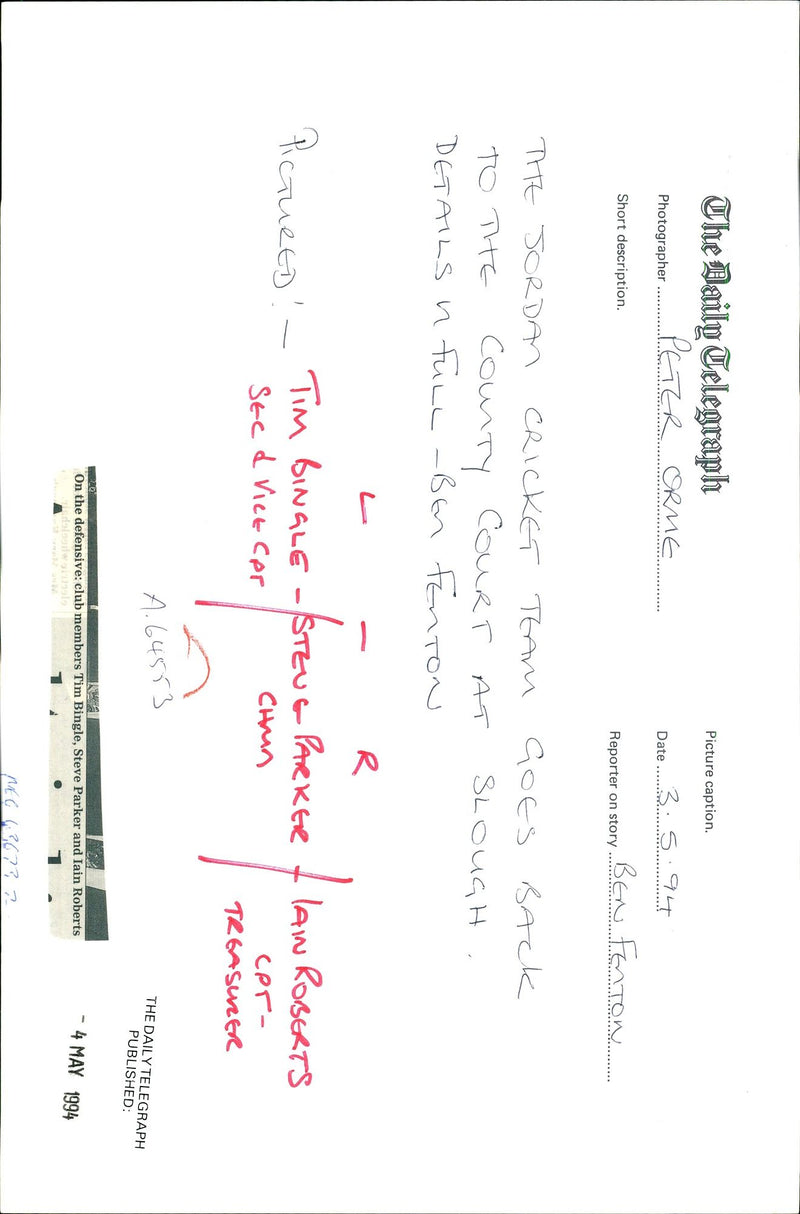 The Daily Telegraph
Picture caption.
Photographer PETER ORME
Date 3.5.94
Short description.
Reporter on story BEN FENTON
THE JORDAN CRICKET TEAM GOES BACK
TO THE COUNTY COURT AT SLOUGH.
DETAILS n FULL - BEN FENTON
L - R
PICTURED! - TIM BINGLE - / STEVE PARKER + / IAIN ROBERTS
SEC & VICE CPT CHMN CPT -
TREASURER
A.64553
THE DAILY TELEGRAPH
PUBLISHED:
- 4 MAY 1994
On the defensive: club members Tim Bingle, Steve Parker and Iain Roberts